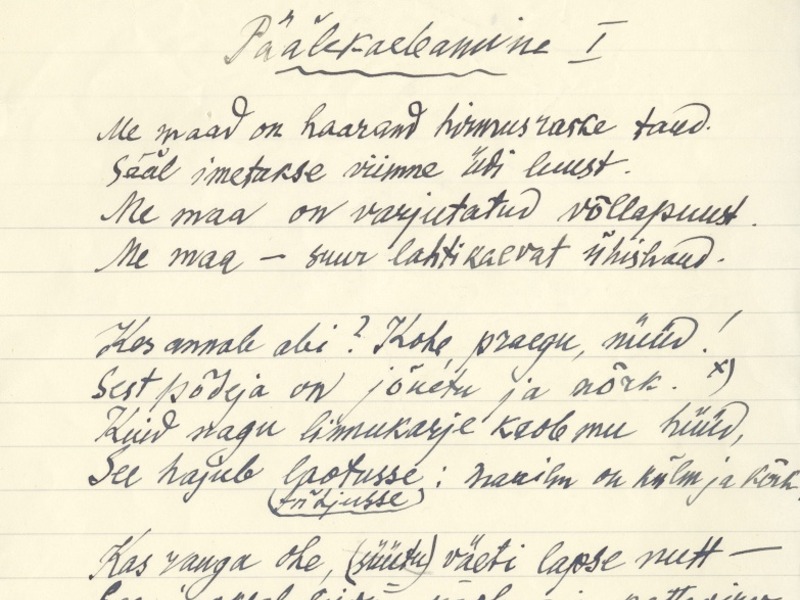 Pääлekaebamine I
Me maad on haarand hirmus raske taud.
Sääl imetakse viimne üdi luust.
Me maa on varjutatud võllapuust.
Me maa – suur lahtikaevat ühishaud.
Kes annab abi? Kohe, praegu, nüüd!
Sest põdeja on jõuetu ja nõrk. x)
Kuid nagu linnukarje kaob mu hüüd,
See hajub laotusse: maailm on külm ja kõrk.
(tühjusse)
Kas ranga ohe, (süütu) väeti lapse nutt –